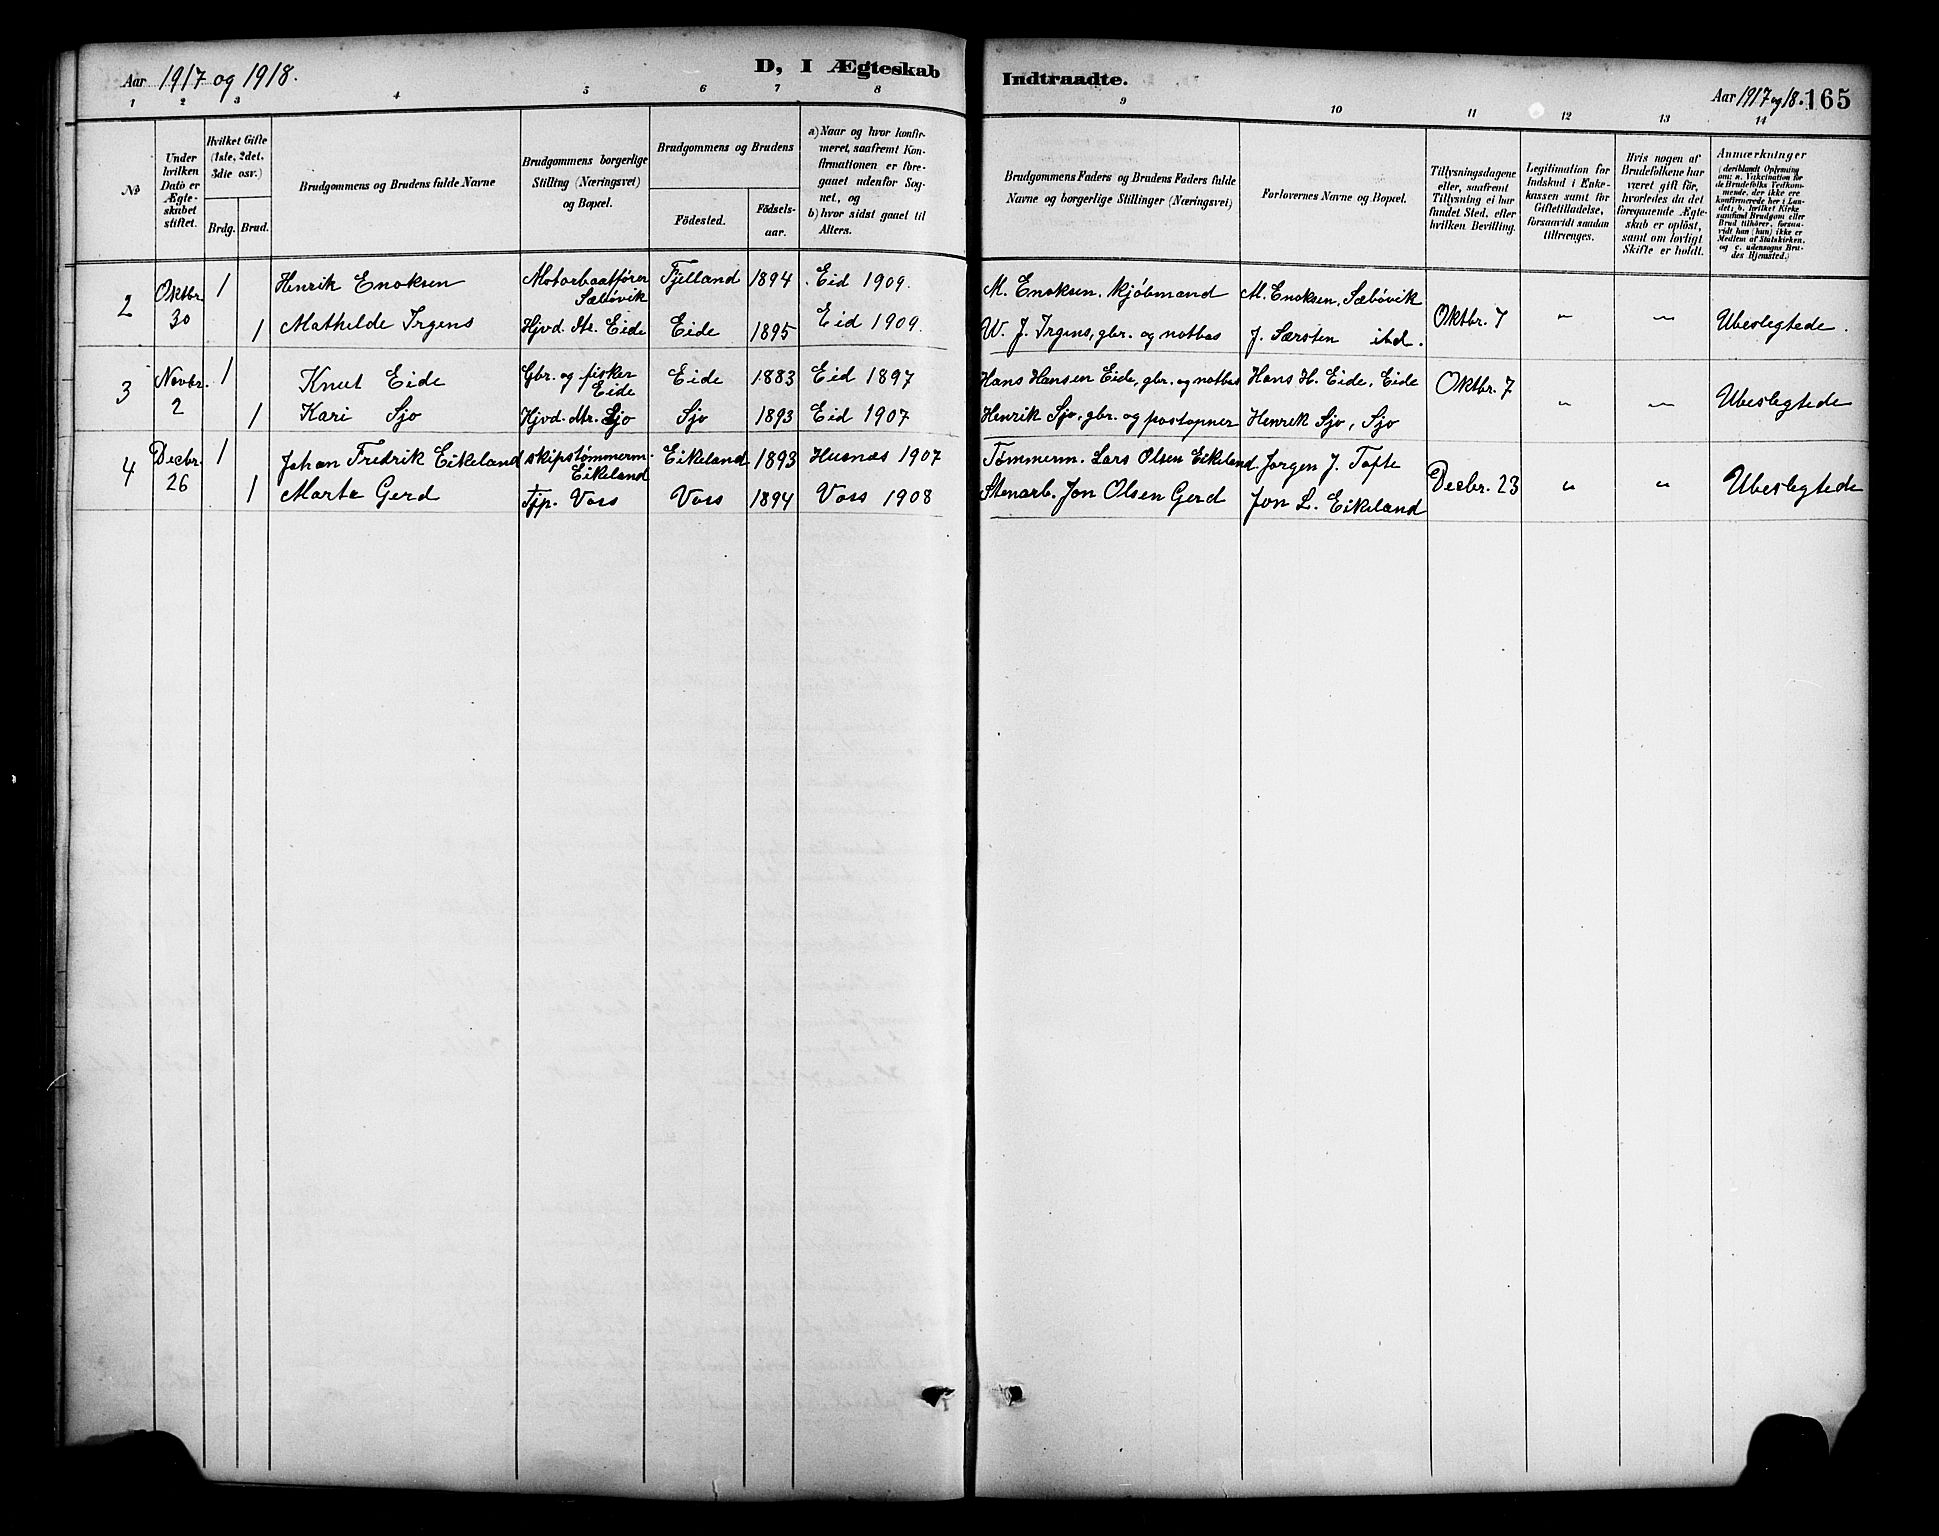 Aar 1917 og 1918.
D, I Ægteskab
Indtraadte.
Aar 1917 og 18. 165
1 2 3 4 5 6 7 8
9 10 11 12 13 14
No
Under hvilken Dato er Ægteskabet stiftet.
Hvilket Gifte (1ste, 2det, 3die osv.)
Brdg. Brud.
Brudgommens og Brudens fulde Navne
Brudgommens borgerlige Stilling (Næringsvei) og Bopæl.
Brudgommens og Brudens
Födested.
Födselsaar.
a) Naar og hvor konfirmeret, saafremt Konfirmationen er foregaaet udenfor Sognet, og
b) hvor sidst gaaet til Alters.
Brudgommens Faders og Brudens Faders fulde Navne og borgerlige Stillinger (Næringsvei)
Forlovernes Navne og Bopæl.
Tillysningsdagene eller, saafremt Tillysning ei har fundet Sted, efter hvilken Bevilling.
Legitimation for Indskud i Enkekassen samt for Giftetilladelse, forsaavidt saadan tiltrænges.
Hvis nogen af Brudefolkene har været gift för, hvorledes da det foregaaende Ægteskab er oplöst, samt om lovligt Skifte er holdt.
Anmærkninger
(deriblandt Oplysning om: a. Vakcination for de Brudefolks Vedkommende, der ikke ere konfirmerede her i Landet; b. hvilket Kirkesamfund Brudgom eller Brud tilhörer, forsaavidt han (hun) ikke er Medlem af Statskirken, og c. udensogns Brudes Hjemsted.)
2 Oktbr. 30 1 Henrik Enoksen Motorbaatfører Sæbøvik Fjelland 1894 Eid 1909. M. Enoksen, kjöbmand M. Enoksen, Sæbövik Oktbr. 7 " " Ubeslegtede.
1 Mathilde Irgens Hjvd. dtr. Eide Eide 1895 Eid 1909. W. J. Irgens, gbr. og notbas J. Særsten ibd.
3 Novbr. 2 1 Knut Eide Gbr. og fisker Eide Eide 1883 Eid 1897 Hans Hansen Eide, gbr. og notbas Hans H. Eide, Eide Oktbr. 7 " " Ubeslegtede
1 Kari Sjo Hjvd. dtr. Sjo Sjo 1893 Eid 1907 Henrik Sjo, gbr. og postopner Henrik Sjo, Sjo
4 Decbr. 26 1 Johan Fredrik Eikeland skipstømmerm. Eikeland Eikeland 1893 Husnæs 1907 Tømmerm. Lars Olsen Eikeland Jorgen J. Tofte Decbr. 23 " " Ubeslegtede
1 Marta Gerd Tjp. Voss Voss 1894 Voss 1908 Stenarb. Jon Olsen Gerd Jon L. Eikeland